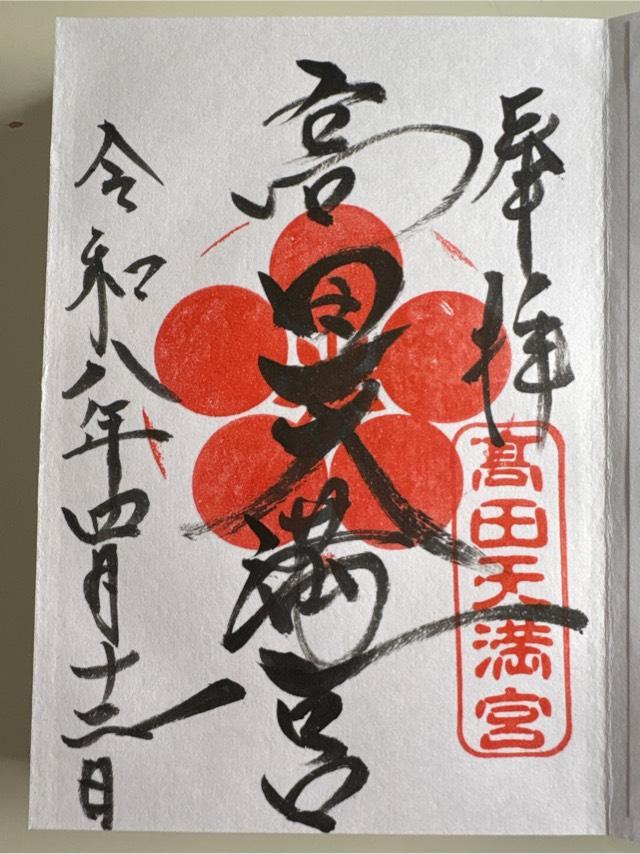 奉拝
髙田天満宮
高田天満宮
令和八年四月十二日